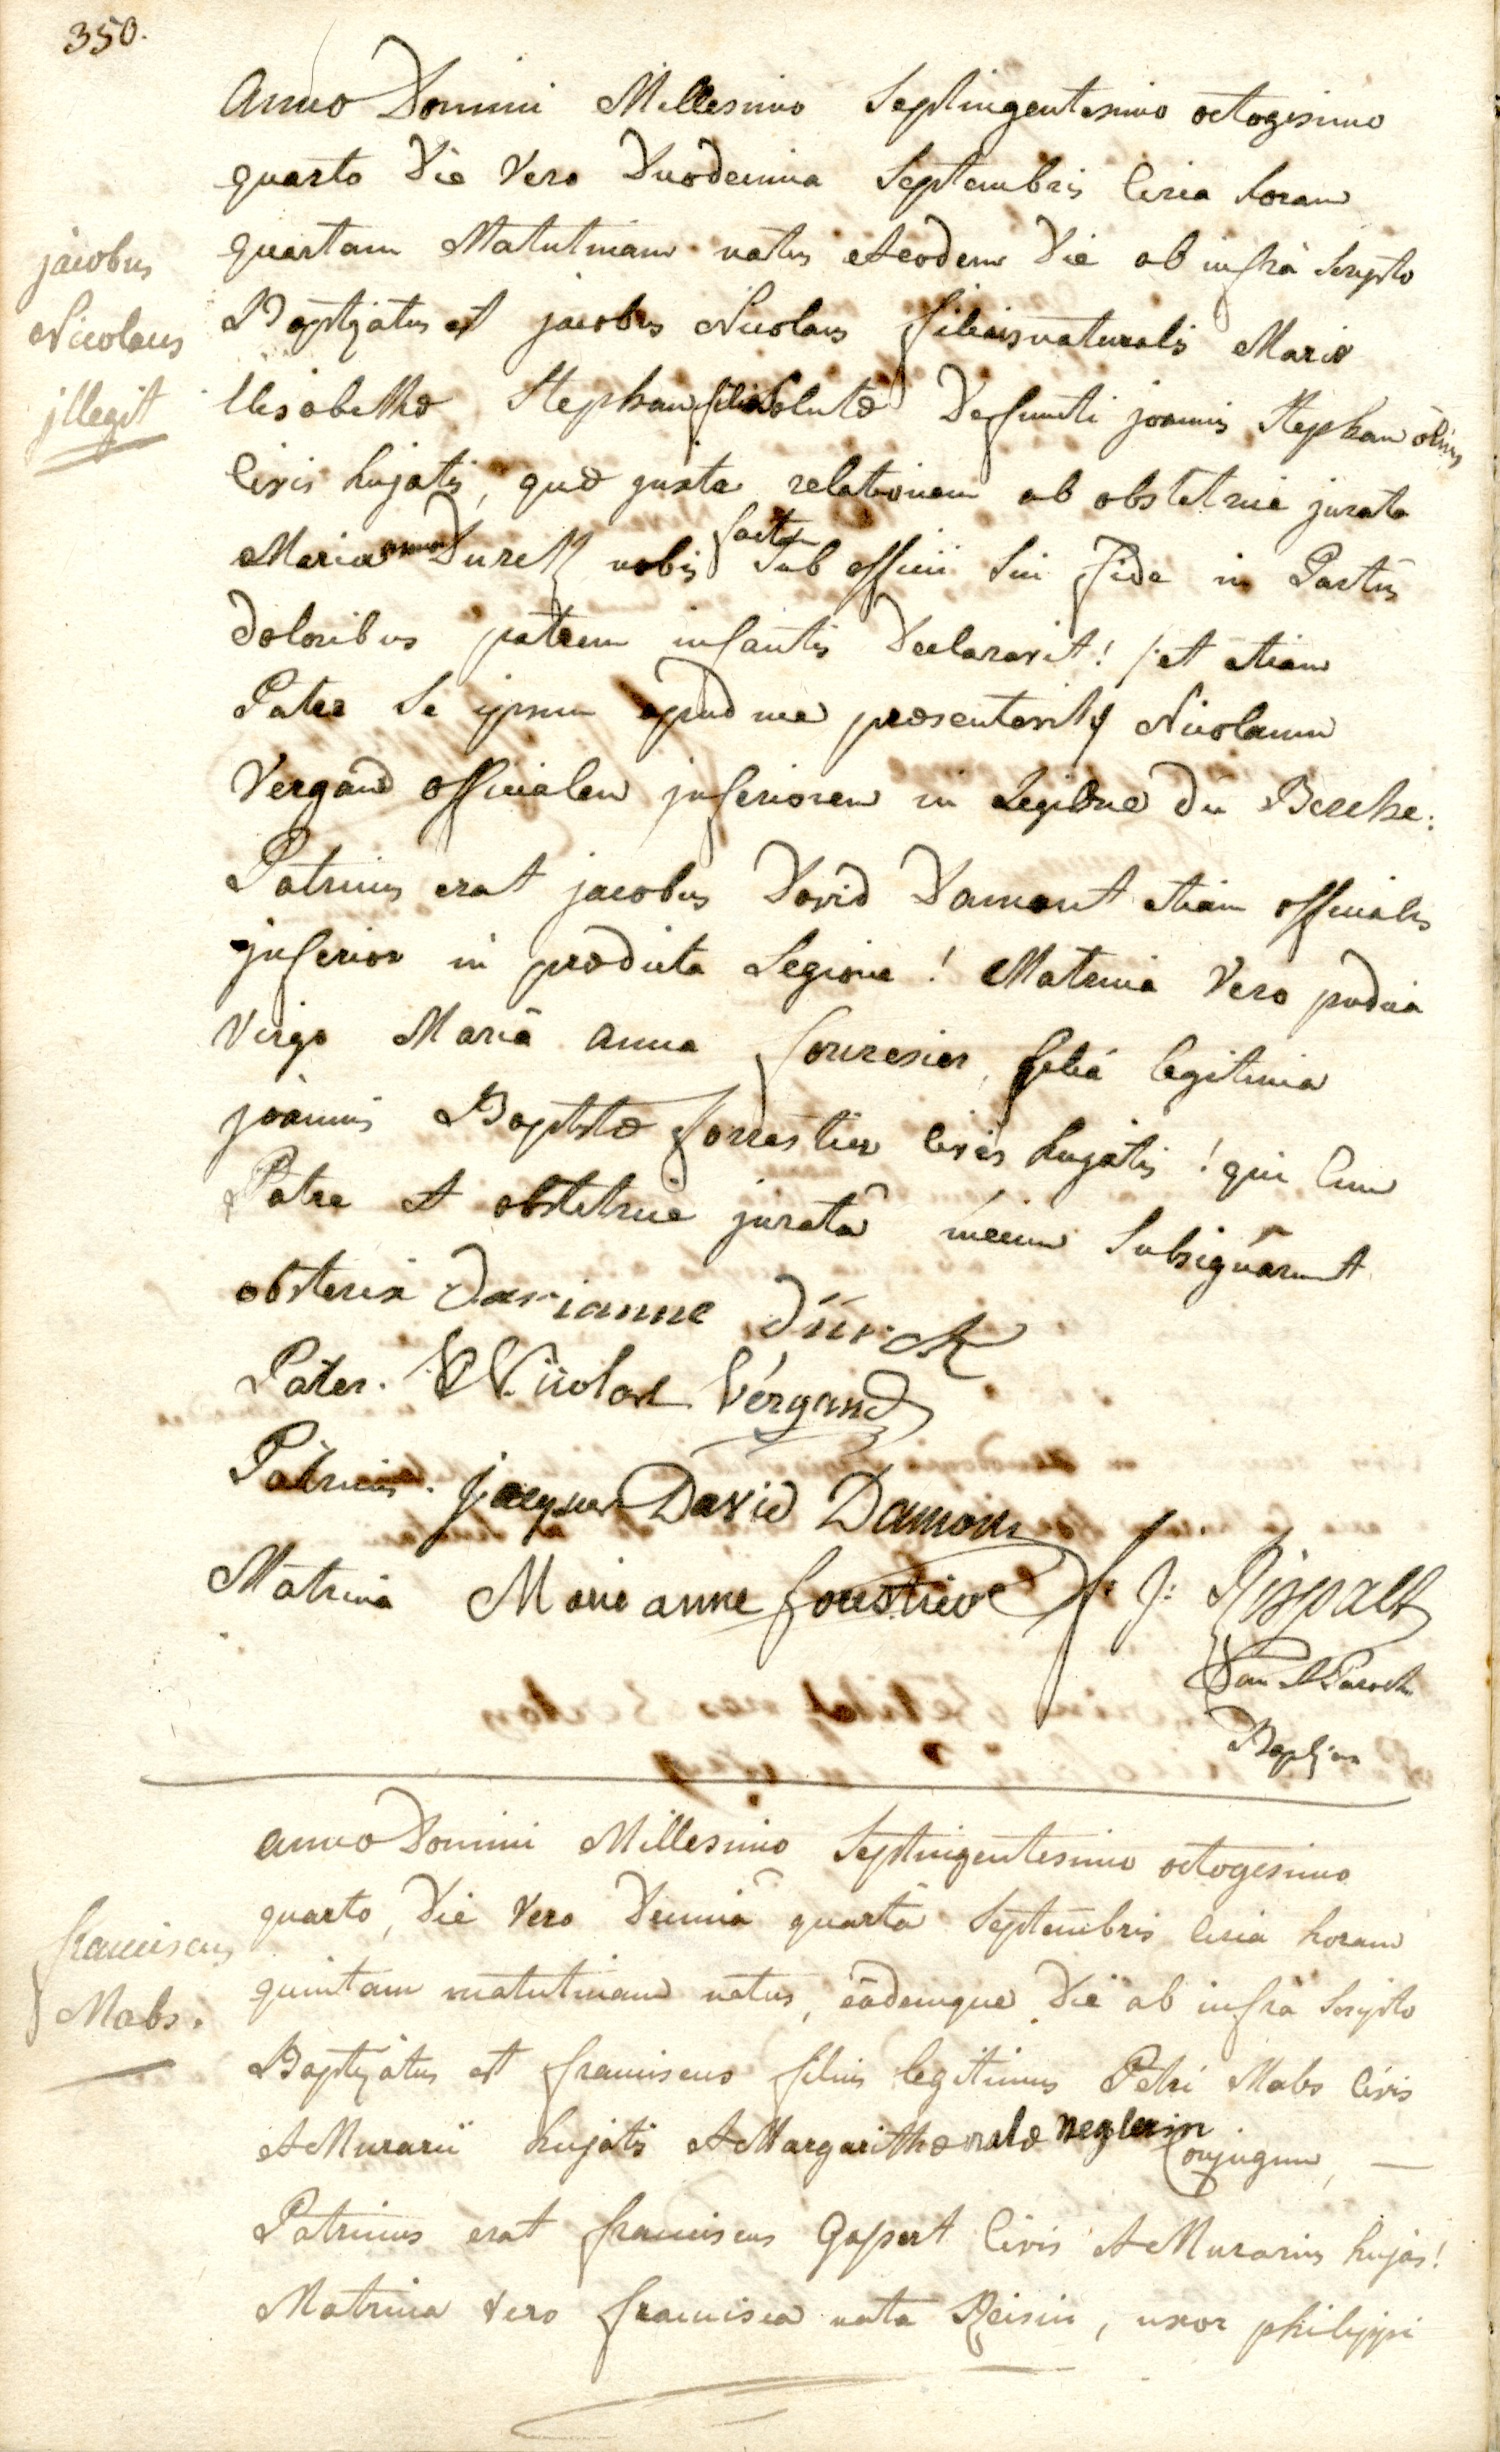 350.
Anno Domini Millesimo Septingentesimo octogesimo
quarto Die Vero Duodecima Septembris Circa horam
quartam Matutinam natus et eodem Die ab infrà Scripto
Baptizatus est jacobus Nicolaus filius naturalis Mariæ
Elisabethæ Stephan filiæ Solutæ Defuncti joannis Stephan olim
Civis hujatis, quæ juxta relationem ab obstetrice jurata
Maria anna Durck nobis fact Sub officii Sui fide in Partus
doloribus patrem infantis Declaravit! /: et etiam
Pater Se ipsum apud me præsentavit :/ Nicolaum
Vergand officialem inferiorem in Legione du Berche.
Patrinus erat jacobus David Damont etiam officialis
inferior in prædicta Legione! Matrina Vero pudica
Virgo Maria anna foriresier, filia legitima
joannis Baptistæ forrestier civis hujatis! qui Cum
Patre et obstetrice jurata mecum Subsignarunt
obsterix Marianne Dürck
Pater. Nicolas Vergand
Patrinus. Jacque David Damont
Matrina Marie anne forestier J: J: Rispalt
Can et Paroch
Baptizans
jacobus
Nicolaus
jllegit
anno Domini Millesimo Septingentesimo octogesimo
quarto, Die Vero Decima quarta Septembris Circa horam
quintam matutinam natus, eademque Die ab infra Scripto
Baptizatus est franciscus filius legitimus Petri Mabs Civis
et Murarii hujatis et Margarithæ natæ neglerin Conjugum, —
Patrinus erat franciscus Gapert Civis et Murarius hujas!
Matrina vero francisca nata Reisin, uxor philippi
franciscus
Mabs.